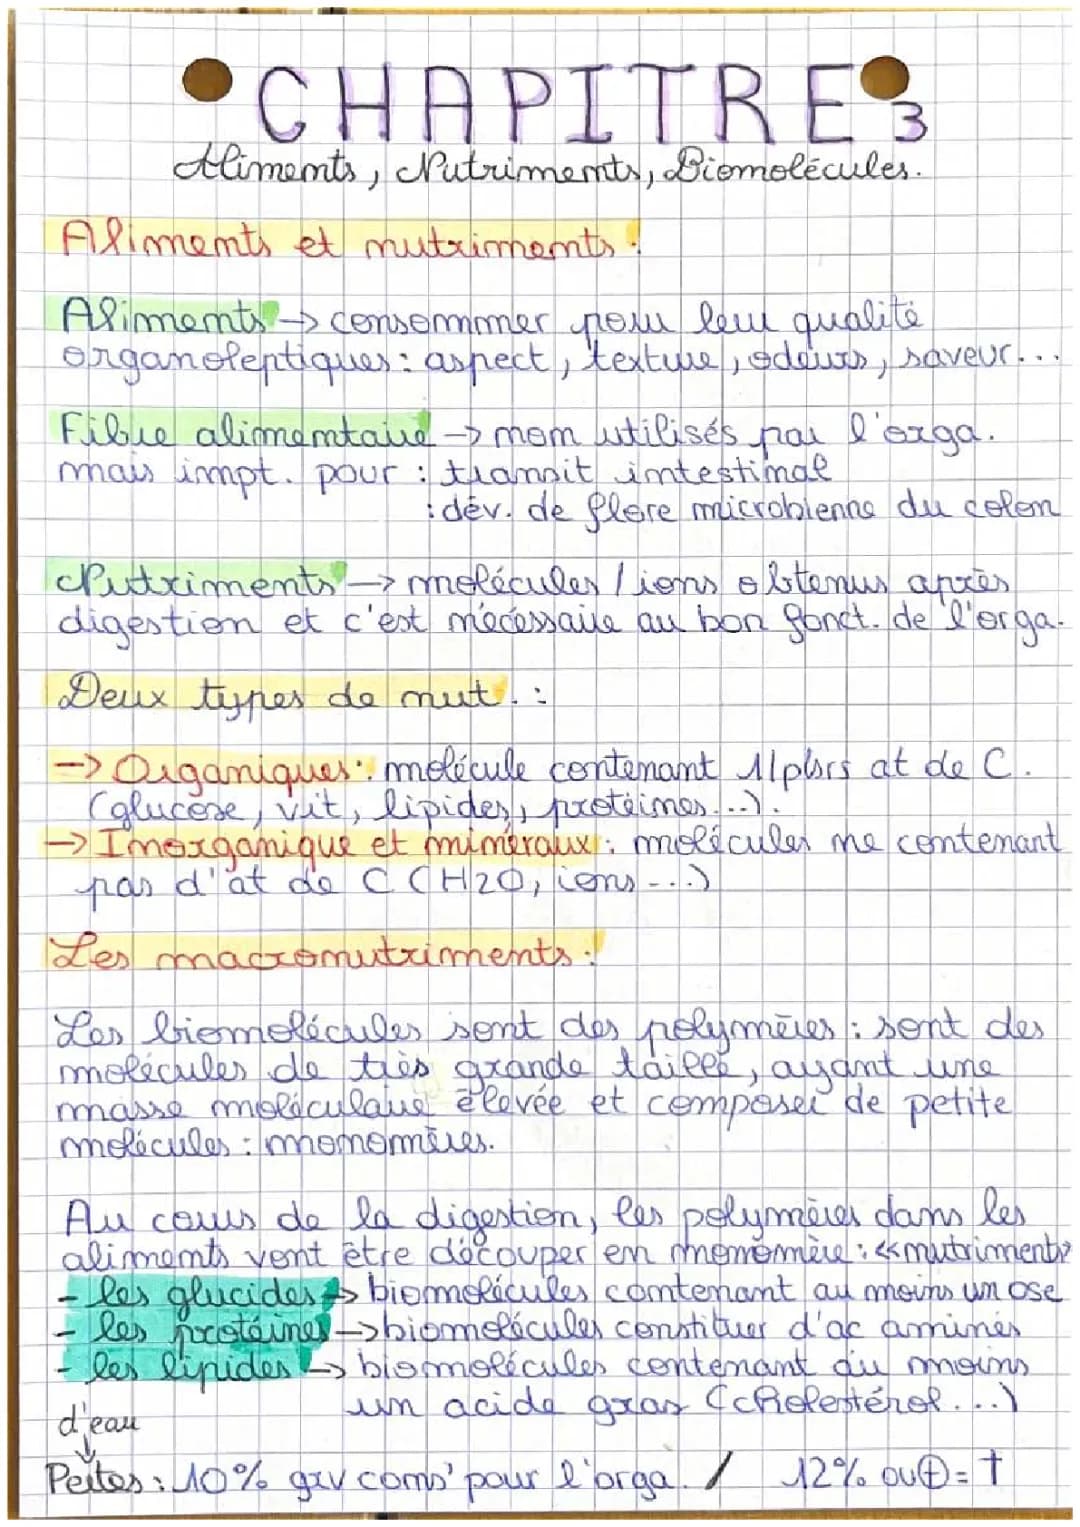 CHAPITRE 3
Aliments, Nutriments, Biomolécules.
Aliments et nutriments :
Aliments → consommer pour leur qualité
organoleptiques : aspect, texture, odeurs, saveur...
Fibre alimentaire → non utilisés par l'orga.
mais impt. pour : transit intestinal
: dév. de flore microbienne du colon
Nutriments → molécules / ions obtenus après
digestion et c'est nécéssaire au bon fonct. de l'orga.
Deux types de nut. :
-> Organiques : molécule contenant 1/plsrs at de C.
(glucose, vit, lipides, protéines...).
-> Inorganique et minéraux : molécules ne contenant
pas d'at de C (H2O, ions...)
Les macronutriments :
Les biomolécules sont des polymères : sont des
molécules de très grande taille, ayant une
masse moléculaire élevée et composer de petite
molécules : monomères.
Au cours de la digestion, les polymères dans les
aliments vont être découper en monomère : «nutriments»
- les glucides → biomolécules contenant au moins un ose
- les protéines → biomolécules constituer d'ac aminés
- les lipides → biomolécules contenant au moins
un acide gras (cholestérol...)
d'eau
↓
Pertes : 10% grv cons' pour l'orga. / 12% ou ⊕ = †